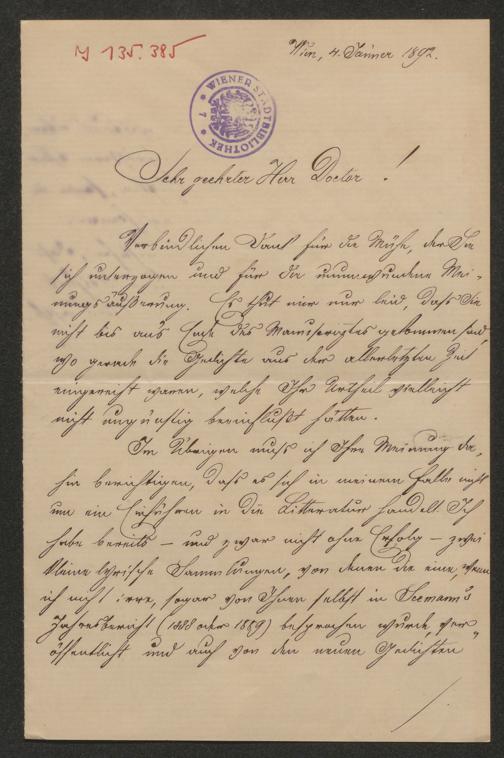 IJ 135.385
Wien, 4. Jänner 1892.
WIENER STADTBIBLIOTHEK
* 7 *
Sehr geehrter Herr Doctor!
Verbindlichen Dank für die Mühe, der Sie
sich unterzogen und für die unumwundene Mei-
nungsäußerung. Es thut mir nur leid, daß Sie
nicht bis an's Ende des Manuscriptes gekommen sind,
wo gerade die Gedichte aus der allerletzten Zeit
eingereiht waren, welche Ihr Urtheil vielleicht
nicht ungünstig beeinflußt hätten.
Im Übrigen muß ich Ihre Meinung da-
hin berichtigen, daß es sich in meinem Falle nicht
um ein Einführen in die Litteratur handelt. Ich
habe bereits – und zwar nicht ohne Erfolg – zwei
kleine lyrische Sammlungen, von denen die eine, wenn
ich nicht irre, sogar von Ihnen selbst in Seemann's
Jahresbericht (1888 oder 1889) besprochen wurde, ver-
öffentlicht und auch von den neuen Gedichten